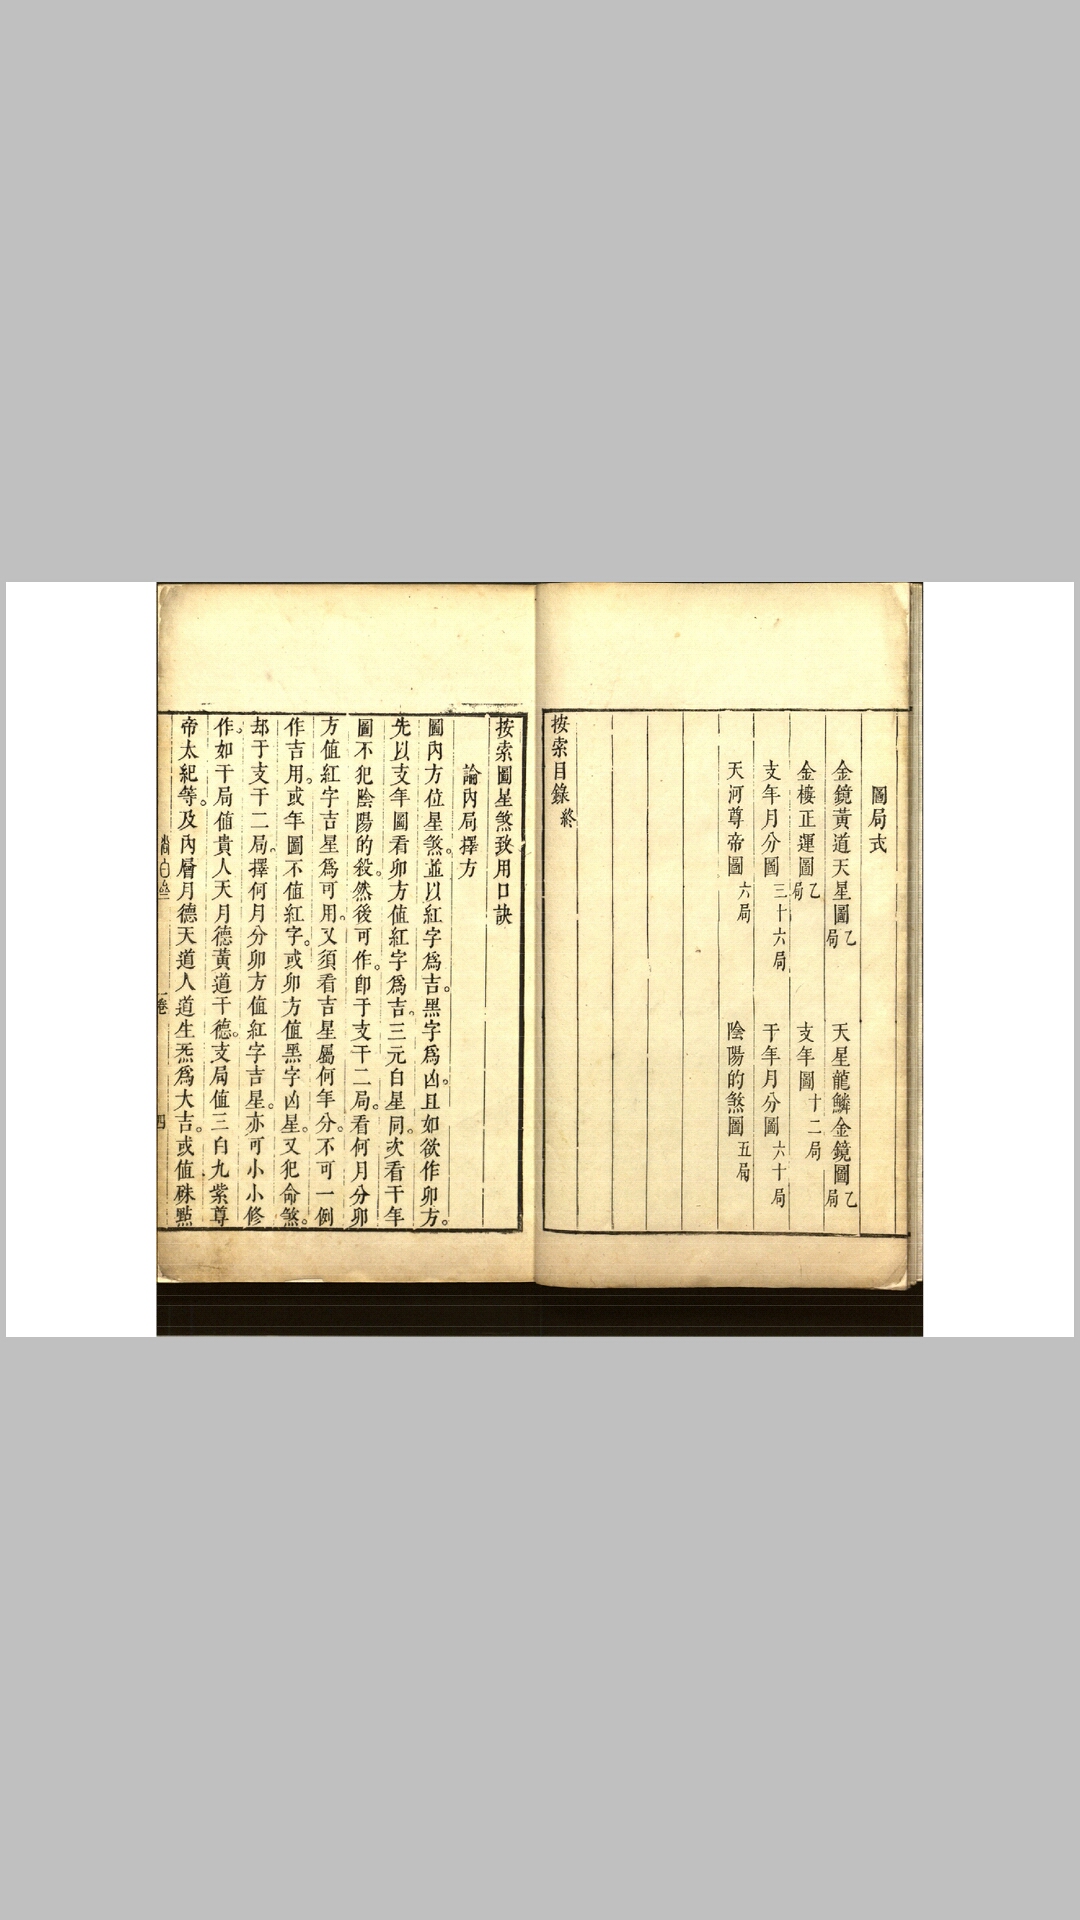 圖局式
金鏡黃道天星圖乙局　天星龍鱗金鏡圖乙局
金樓正運圖乙局　支年圖十二局
支年月分圖三十六局　干年月分圖六十局
天河尊帝圖六局　陰陽的煞圖五局
按索目錄終
按索圖星煞致用口訣
論內局擇方
圖內方位星煞。並以紅字爲吉。黑字爲凶。且如欲作卯方。
先以支年圖看卯方值紅字爲吉。三元白星同。次看干年
圖不犯陰陽的殺。然後可作。卽于支干二局。看何月分卯
方值紅字吉星爲可用。又須看吉星屬何年分。不可一例
作吉用。或年圖不值紅字。或卯方值黑字凶星。又犯命煞。
却于支干二局。擇何月分卯方值紅字吉星。亦可小小修
作。如干局值貴人天月德黃道干德。支局值三白九紫尊
帝太紀等。及內層月德天道人道生炁爲大吉。或值硃點
卷
四